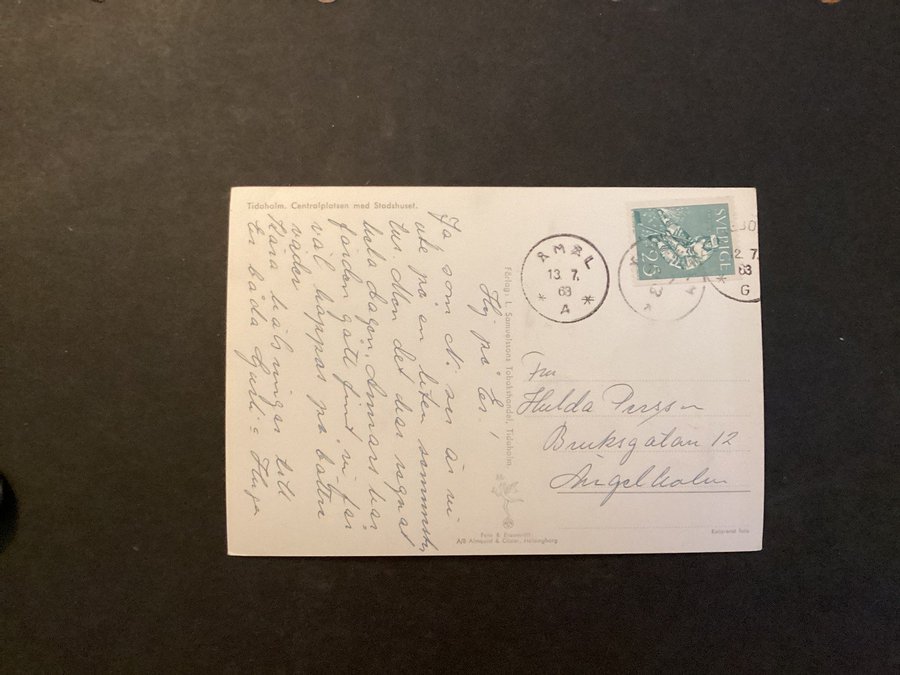 Tidaholm. Centralplatsen med Stadshuset.
Hej på Er!
Ja, som Ni ser är vi
ute på en liten
tur. Men det har regnat
hela dagen. Annars har
färden gått fint. vi får
väl hoppas på bättre
väder
Kära hälsningar till
Er båda
Förlag: L. Samuelssons Tobakshandel, Tidaholm.
ÅMÅL
13. 7.
63
* A *
SVERIGE
25
2. 7.
63
* G
Fru
Hulda Persson
Bruksgatan 12
Ängelholm
A/B Almquist & Cöster, Helsingborg
Ensamrätt foto